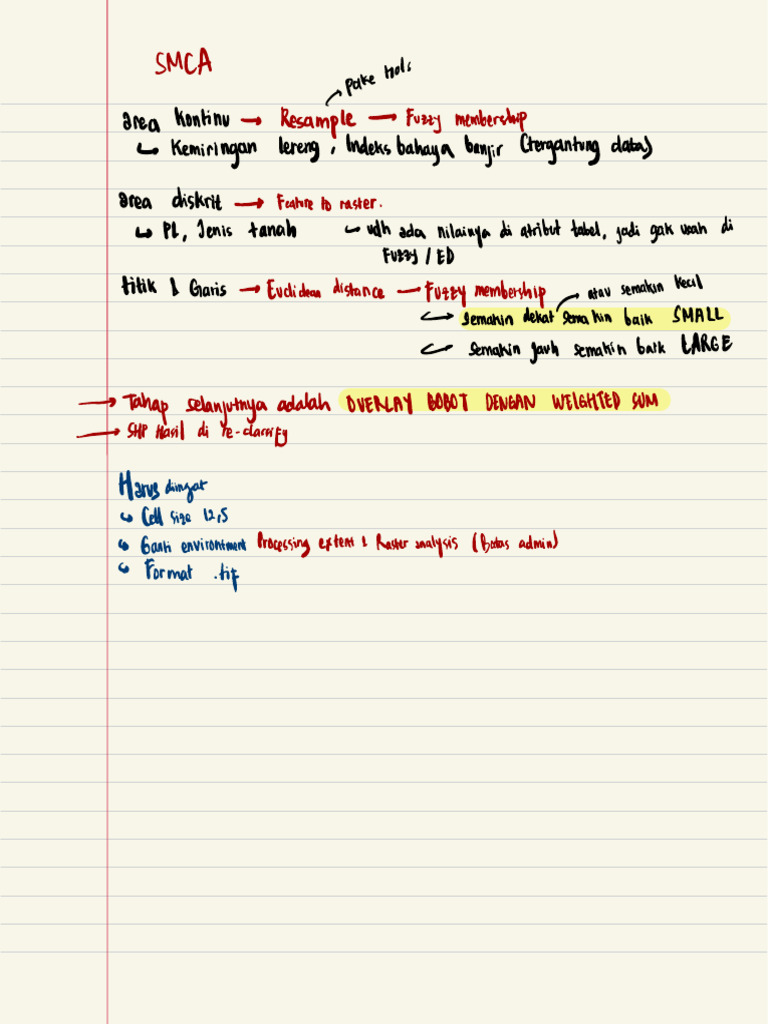 SMCA
pake tools
area kontinu → Resample → Fuzzy membership
↳ Kemiringan lereng, Indeks bahaya banjir (tergantung data)
area diskrit → Feature to raster.
↳ PL, Jenis tanah ↳ udh ada nilainya di atribut tabel, jadi gak usah di
Fuzzy / ED
titik & Garis → Euclidean distance → Fuzzy membership
→ atau semakin kecil
↳ semakin dekat semakin baik SMALL
↳ semakin jauh semakin baik LARGE
→ Tahap selanjutnya adalah OVERLAY BOBOT DENGAN WEIGHTED SUM
→ SHP Hasil di re-classify
Harus diingat
↳ Cell size 12,5
↳ Ganti environtment Processing extent & Raster analysis (Batas admin)
↳ Format .tif